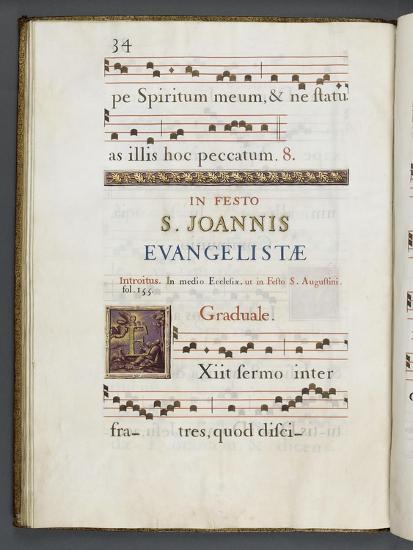 34
pe Spiritum meum, & ne ſtatu
as illis hoc peccatum. 8.
IN FESTO
S. JOANNIS
EVANGELISTÆ
Introitus. In medio Ecclesiæ, ut in Feſto S. Auguſtini.
fol. 155.
Graduale.
Xiit ſermo inter
fra- tres, quod diſci-